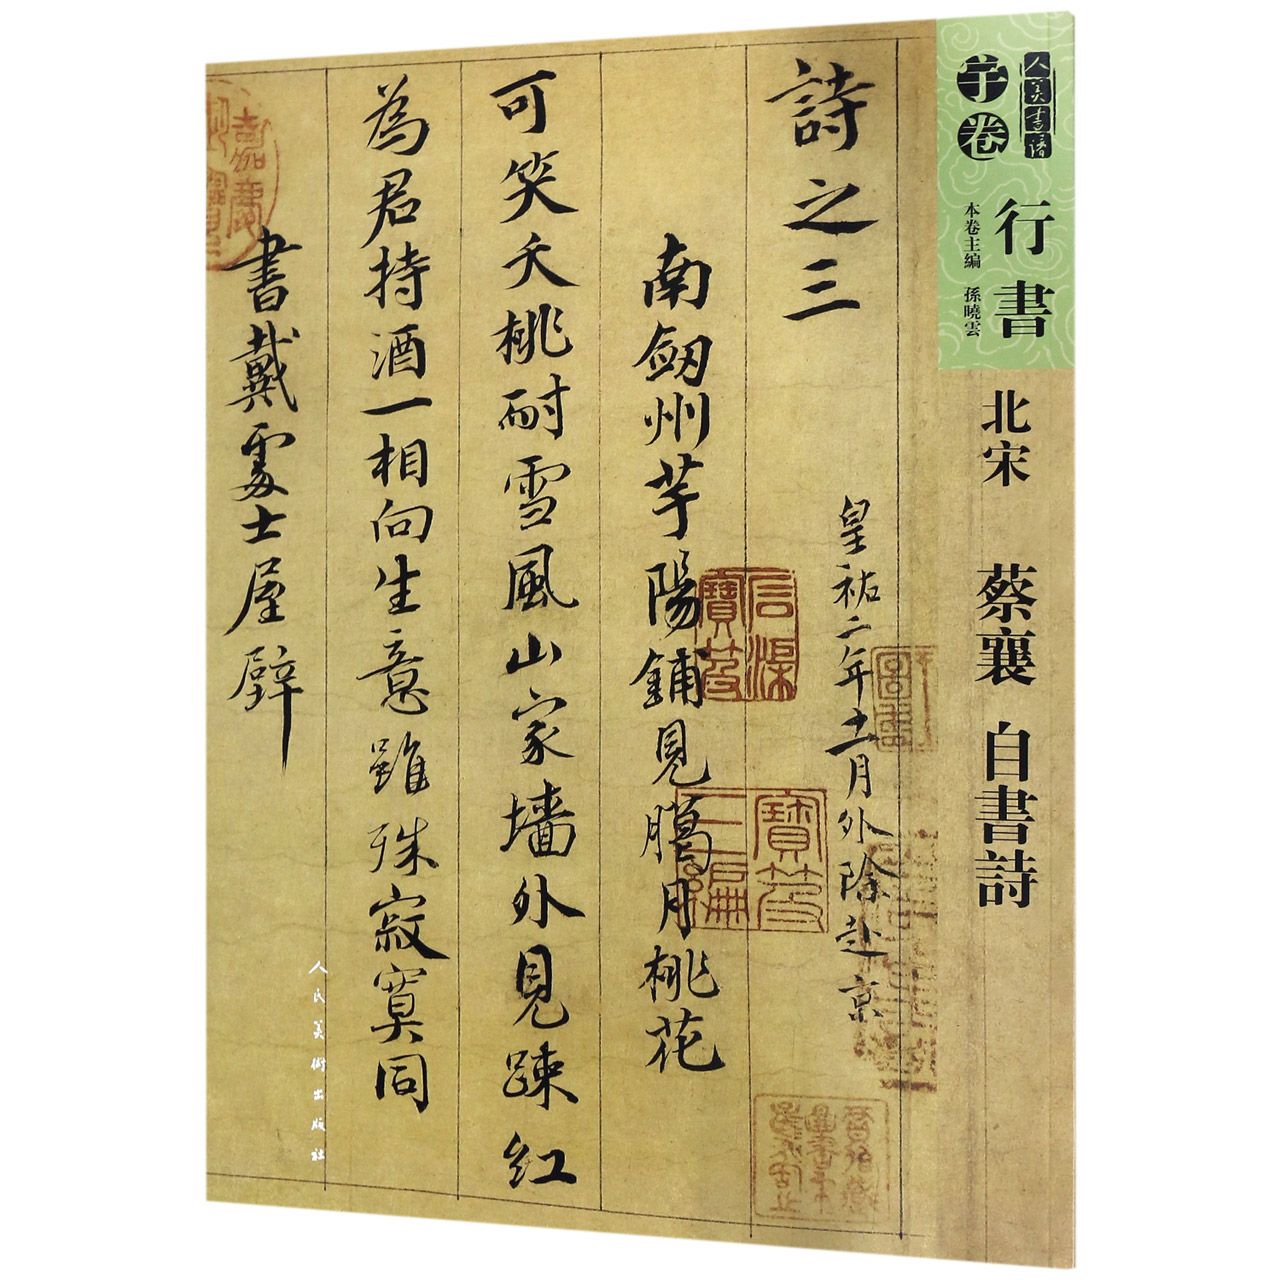 人美書譜
宇卷
行書
本卷主編 孫曉雲
北宋 蔡襄 自書詩
詩之三
皇祐二年十一月外除赴京
南劒州芋陽鋪見臘月桃花
可笑夭桃耐雪風山家墻外見踈紅
為君持酒一相向生意雖殊寂寞同
書戴處士屋壁
石渠寶笈
寶笈三編
嘉慶
人民美術出版社